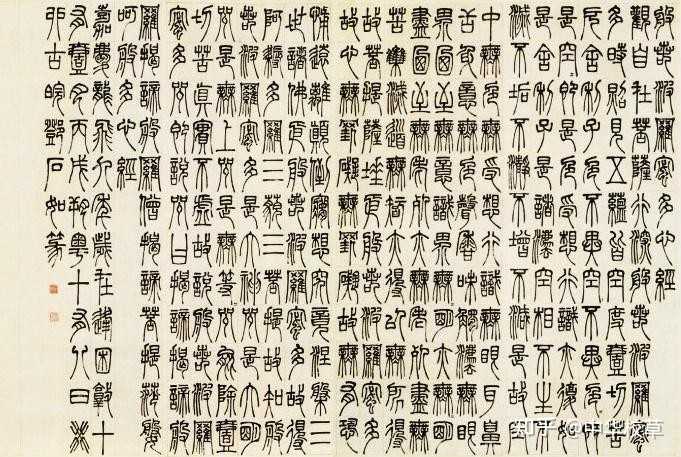 般若波羅蜜多心經
觀自在菩薩行深般若波羅蜜
多時照見五蘊皆空度壹切苦
厄舍利子色不異空不異色即
是空即是色受想行識亦復如
是舍利子是諸法空相不生不
滅不垢不淨不增不減是故空
中無色無受想行識無眼耳鼻
舌身意無色聲香味觸法無眼
界乃至無意識界無明亦無明
盡乃至無老死亦無老死盡無
苦集滅道無智亦得以無所得
故菩提薩埵依般若波羅蜜多
故心無罣礙無罣礙故無有恐
怖遠離顛倒夢想究竟涅槃三
世諸佛依般若波羅蜜多故得
阿耨多羅三藐三菩提故知般
若波羅蜜多是大神咒是大明
咒是無上咒是無等咒能除壹
切苦真實不虛故說般若波羅
蜜多咒即說咒曰揭諦揭諦般
羅揭諦般羅僧揭諦菩提薩婆
呵般多心經
嘉慶龍飛九年歲在逢困敦十
有壹月丙戌朔粵十有八日癸
卯古皖鄧石如篆
知乎